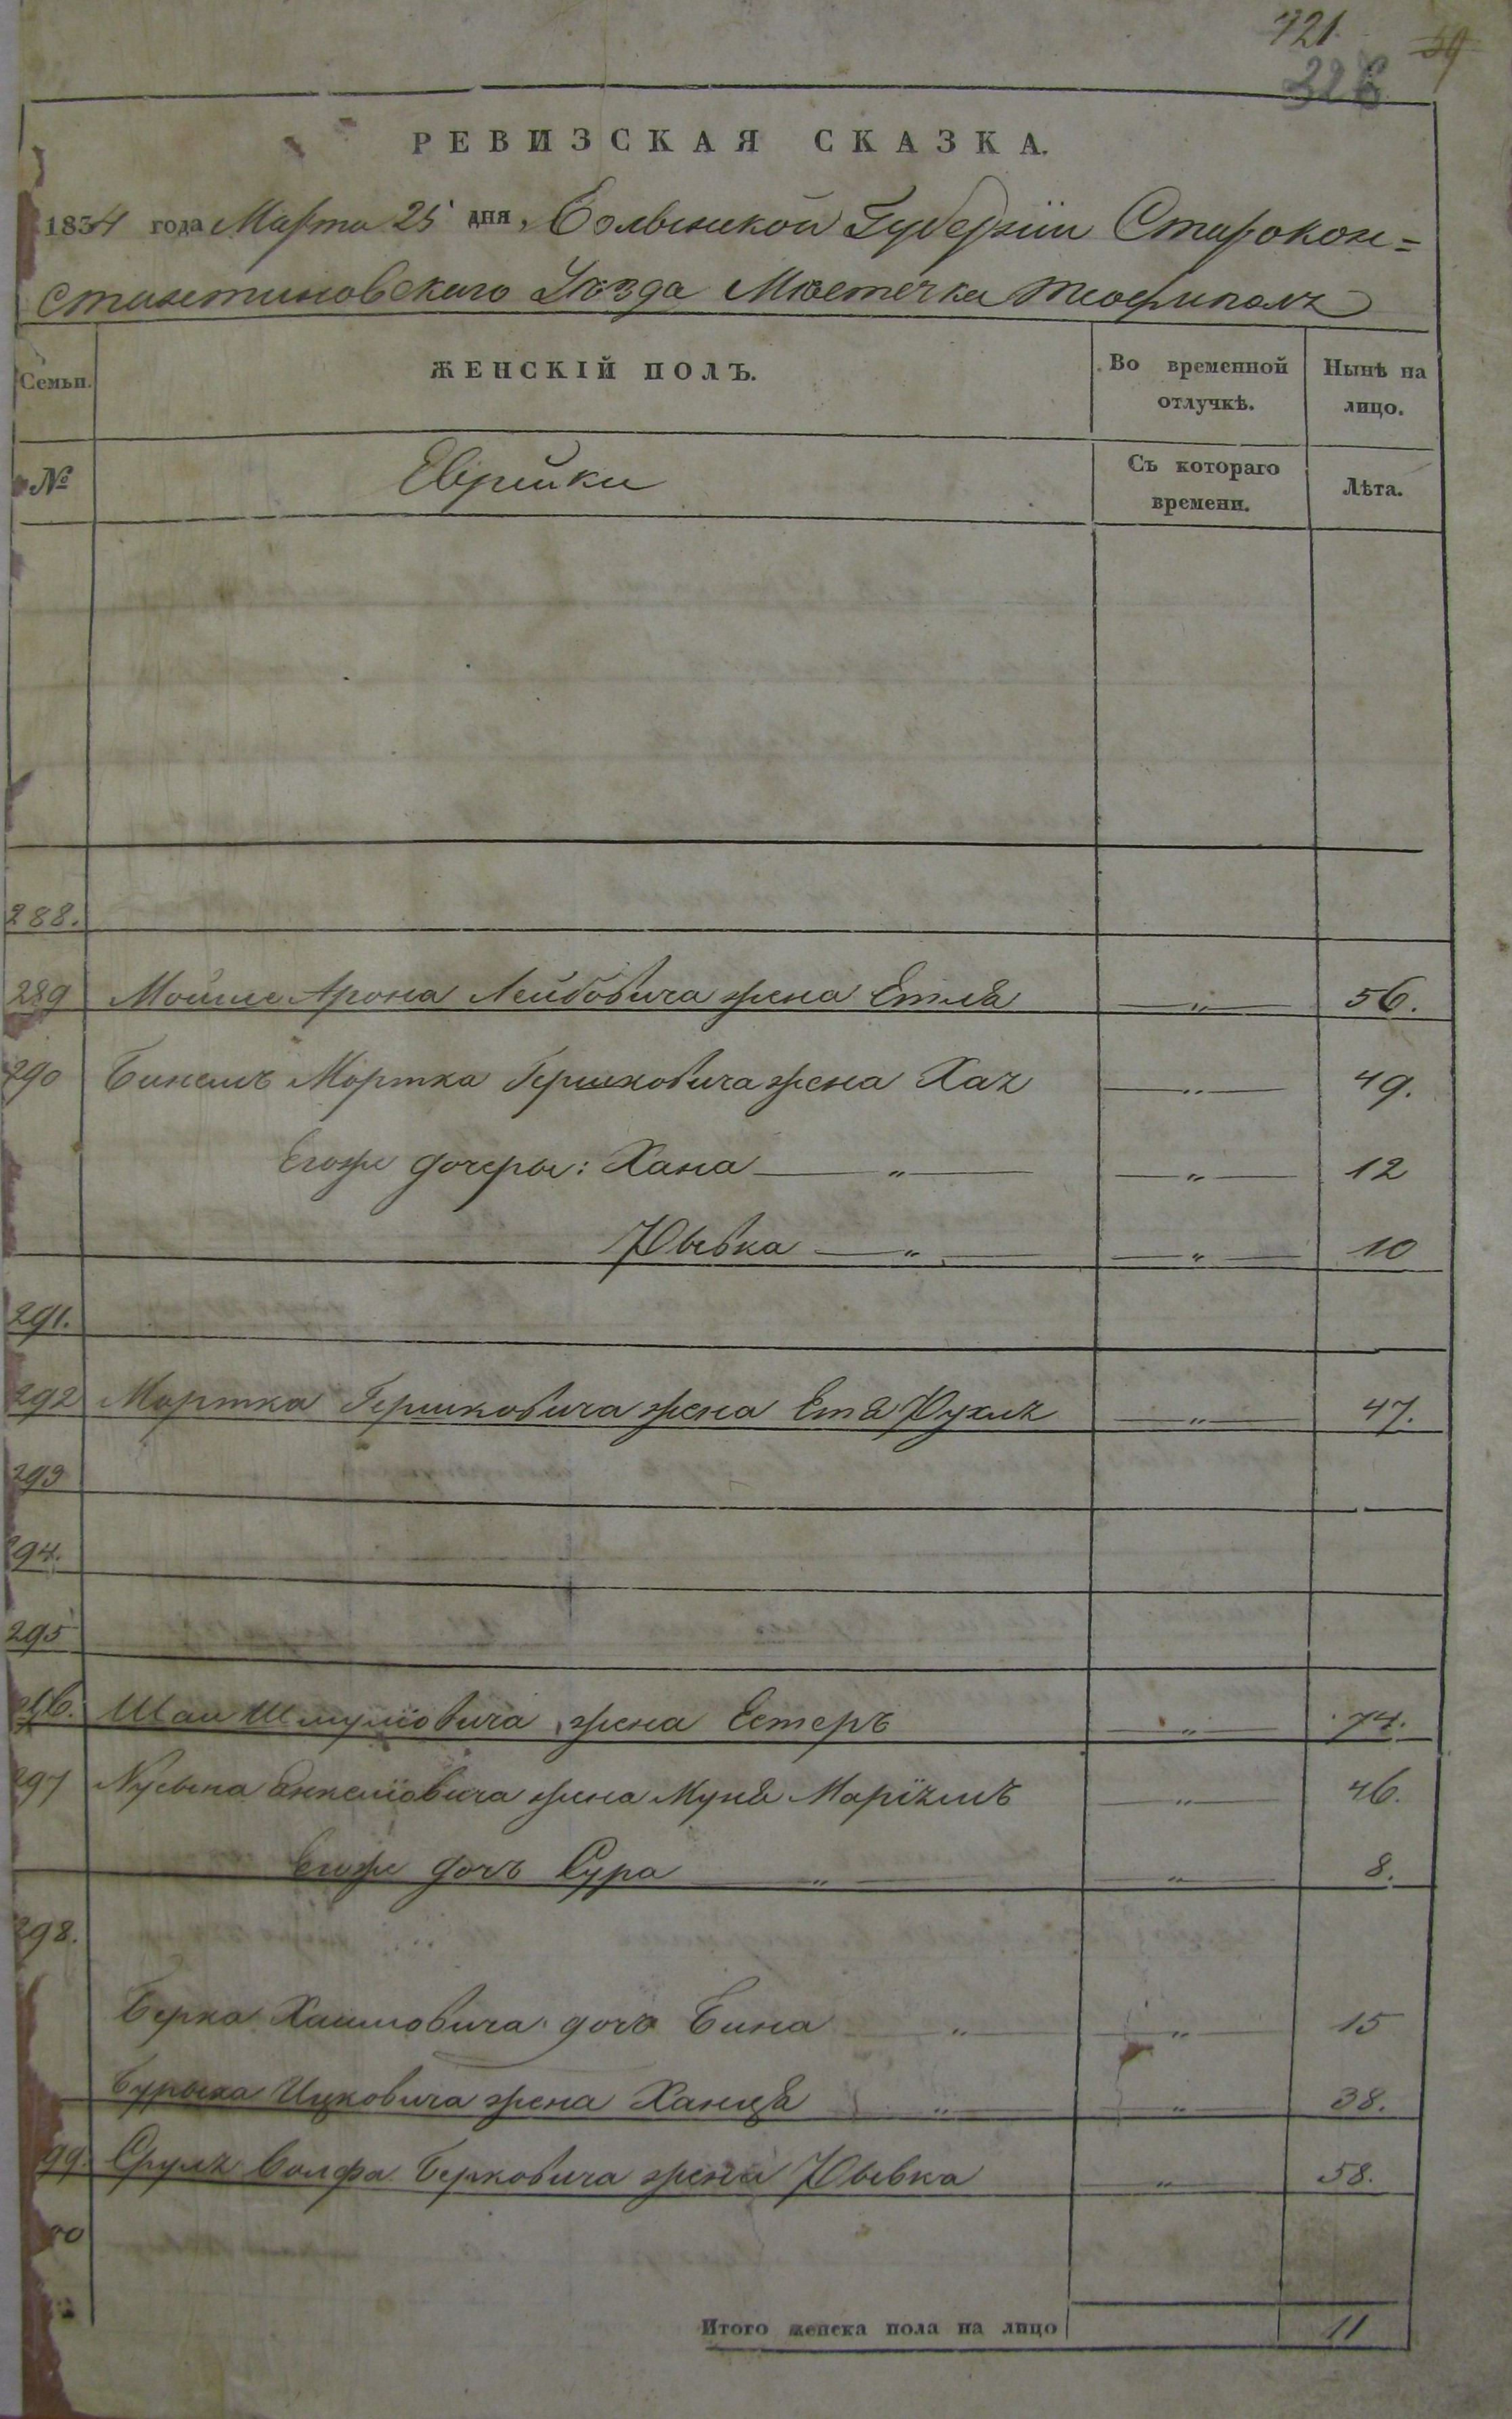 721.
59
326
РЕВИЗСКАЯ СКАЗКА.
1834 года Марта 25 дня, Волынской Губерніи Старокон=
стантиновскаго Уѣзда Мѣстечка Теофиполя
Семьи.
ЖЕНСКІЙ ПОЛЪ.
Во временной отлучкѣ.
Нынѣ на лицо.
№
Еврейки
Съ котораго времени.
Лѣта.
288.
289 Мошле Арона Лейбовича жена Етля —„— 56.
290 Бинемъ Мортка Гершковича жена Хая —„— 49.
Егоже дочеры: Хана —„— —„— 12
Рывка —„— —„— 10
291.
292 Мортка Гершковича жена Етя Рухля —„— 47.
293
294.
295
296. Шаи Шмуліовича жена Естеръ —„— 74.
297 Нусына Янкеліовича жена Муня Маріямъ —„— 46.
Егоже дочь Сура —„— —„— 8.
298.
Берка Хаимовича дочь Бина —„— —„— 15
Бурыха Ицковича жена Ханця —„— —„— 38.
99. Сруля Волфа Берковича жена Рывка —„— 58.
00
Итого женска пола на лицо 11